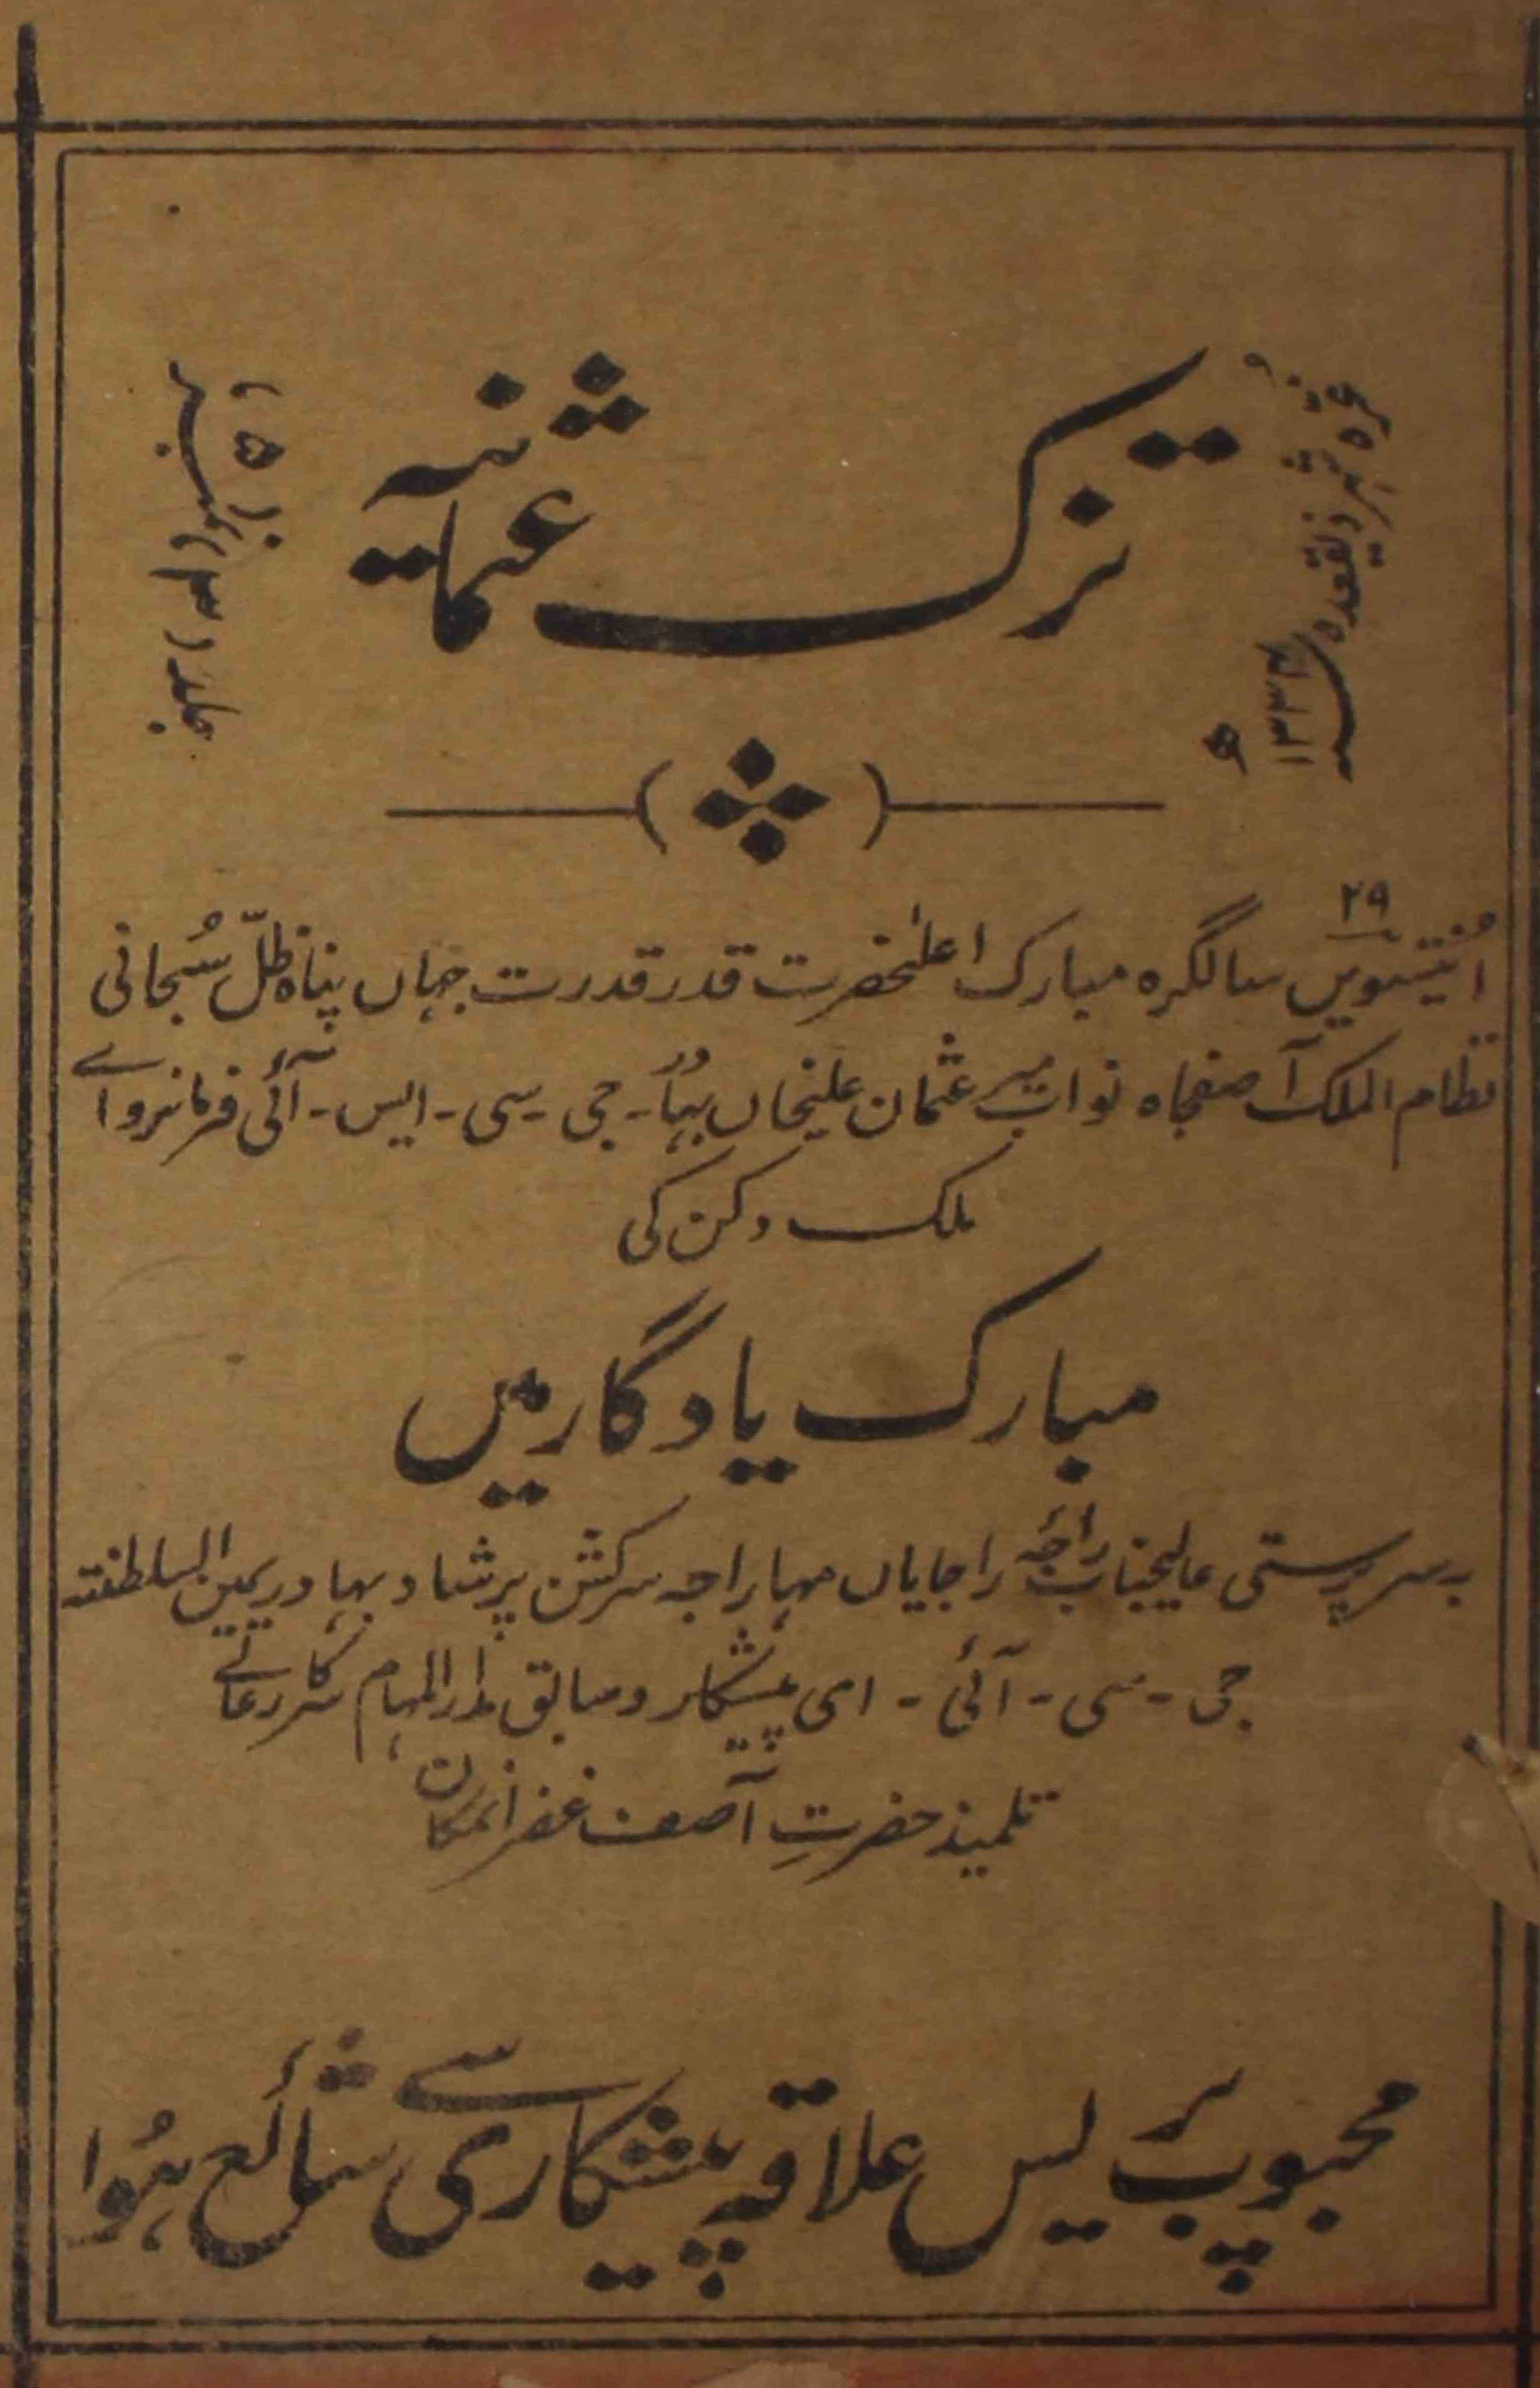 تزک عثمانیہ
غرّہ شہر ذیقعدہ سنہ ۱۳۳۴ ھ
جلد (۳) نمبر (۵)
۲۹
اُنتیسویں سالگرہ مبارک اعلیٰحضرت قدر قدرت جہاں پناہ ظلّ سُبحانی
نظام الملک آصفجاہ نواب میر عثمان علیخاں بہادر - جی - سی - ایس - آئی فرمانروائے
ملک دکن کی
مبارک یادگار میں
بسرپرستی عالیجناب راجۂ راجایاں مہاراجہ سرکشن پرشاد بہادر یمین السلطنتہ
جی - سی - آئی - ای پیشکار و سابق مدارالمہام سرکار عالی
تلمیذ حضرتِ آصف غفرانمکان
محبوب پریس علاقہ پیشکاری سے شائع ہُوا